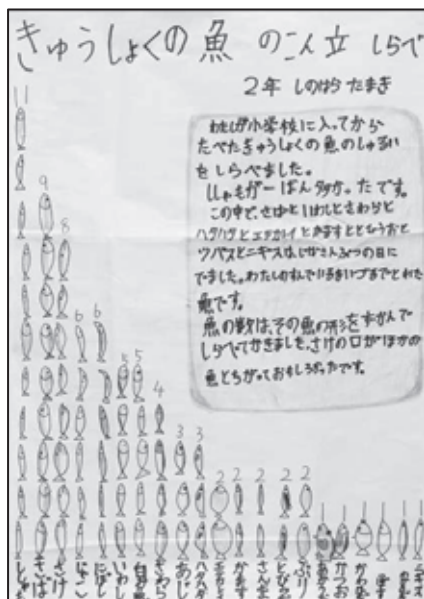 きゅうしょくの魚 のこん立 しらべ
2年 しのはら たまき
わたしが小学校に入ってから
たべたきゅうしょくの魚のしゅるい
をしらべました。
ししゃもが一ばん多かったです。
この中で、さけといわしとさわらと
ハタハタとエテカレイとかますととびうおと
ツバスとニギスは、じばさんぶつの日に
でました。わたしのすんでいるまいづるでとれた
魚です。
魚の数は、その魚の形をずかんで
しらべてかきました。さけの口がほかの
魚とちがっておもしろかったです。
11
9
8
6
6
5
5
4
3
3
2
2
2
2
2
1
1
1
1
1
1
さば
さけ
にぼし
いわし
さわら
あじ
ハタハタ
かます
ぶり
かつお
ニギス